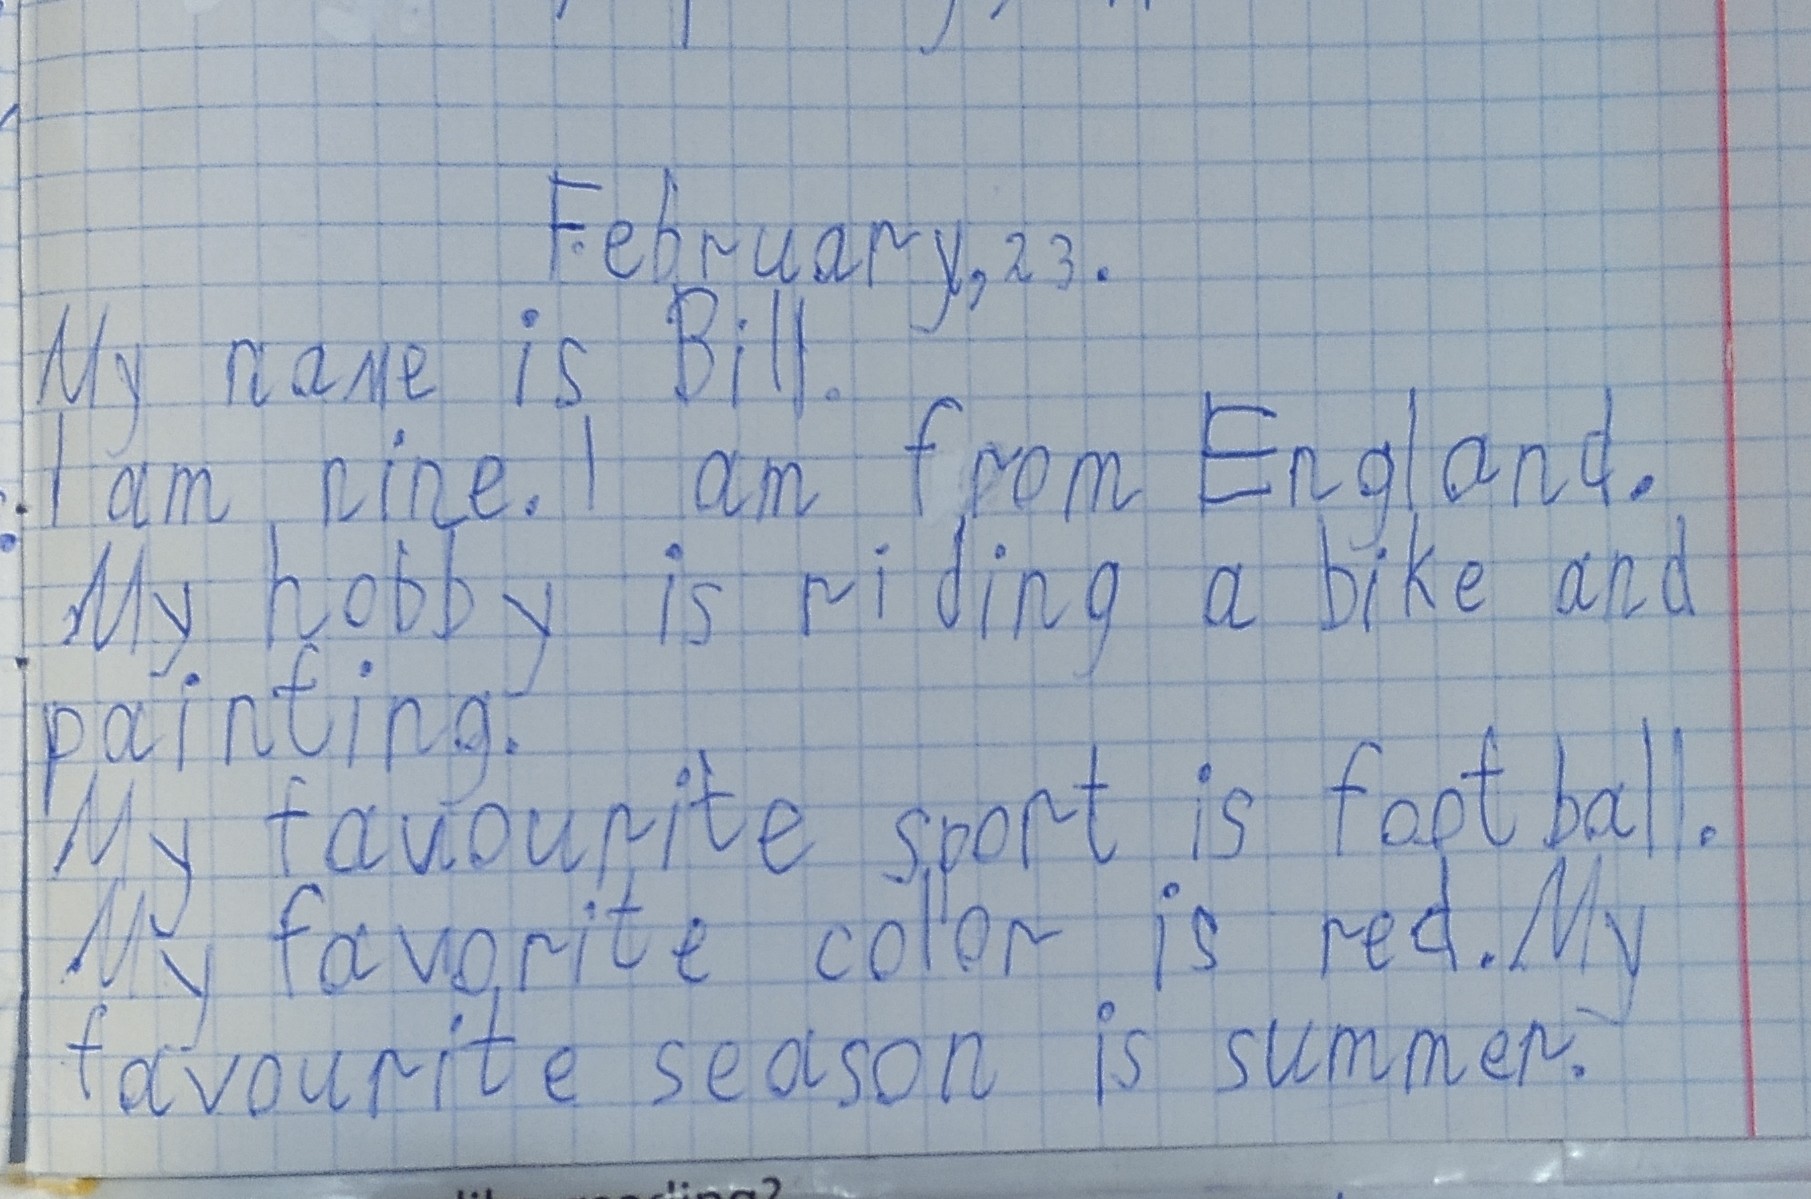 February, 23.
My name is Bill.
I am nine. I am from England.
My hobby is riding a bike and
painting.
My favourite sport is football.
My favorite color is red. My
favourite season is summer.
reading?